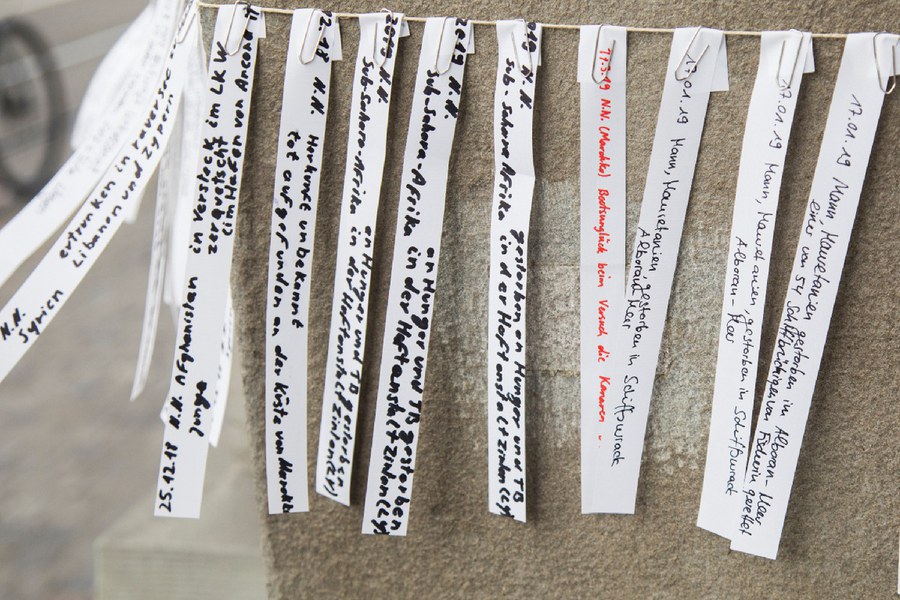 N.N. ertrunken in reverse
Syrien Libanon und Zypern
25.12.18 N.N. Afghanistan in Versteck im LKW
jung zerquetscht (im Hafen von Ancona
12.18 N.N. Herkunft unbekannt
tot aufgefunden an der Küste von Marokko
N.N. an Hunger und TB gestorben
Sub-Sahara-Afrika in der Haftanstalt Zintan (Ly)
2019 N.N. an Hunger und TB gestorben
Sub-Sahara Afrika in der Haftanstalt Zintan (Ly)
N.N. gestorben an Hunger und TB
Sub Sahara Afrika in der Haftanstalt Zintan (Ly)
11.3.19 N.N. (Marokko) Bootsunglück beim Versuch die Kanaren
17.01.19 Mann, Mauretanien, gestorben in Schiffswrack
Alboran-Meer
17.01.19 Mann, Mauretanien, gestorben in Schiffswrack
Alboran-Meer
17.01.19 Mann, Mauretanien gestorben im Alboran-Meer
einer von 54 Schiffbrüchigen von gerettet